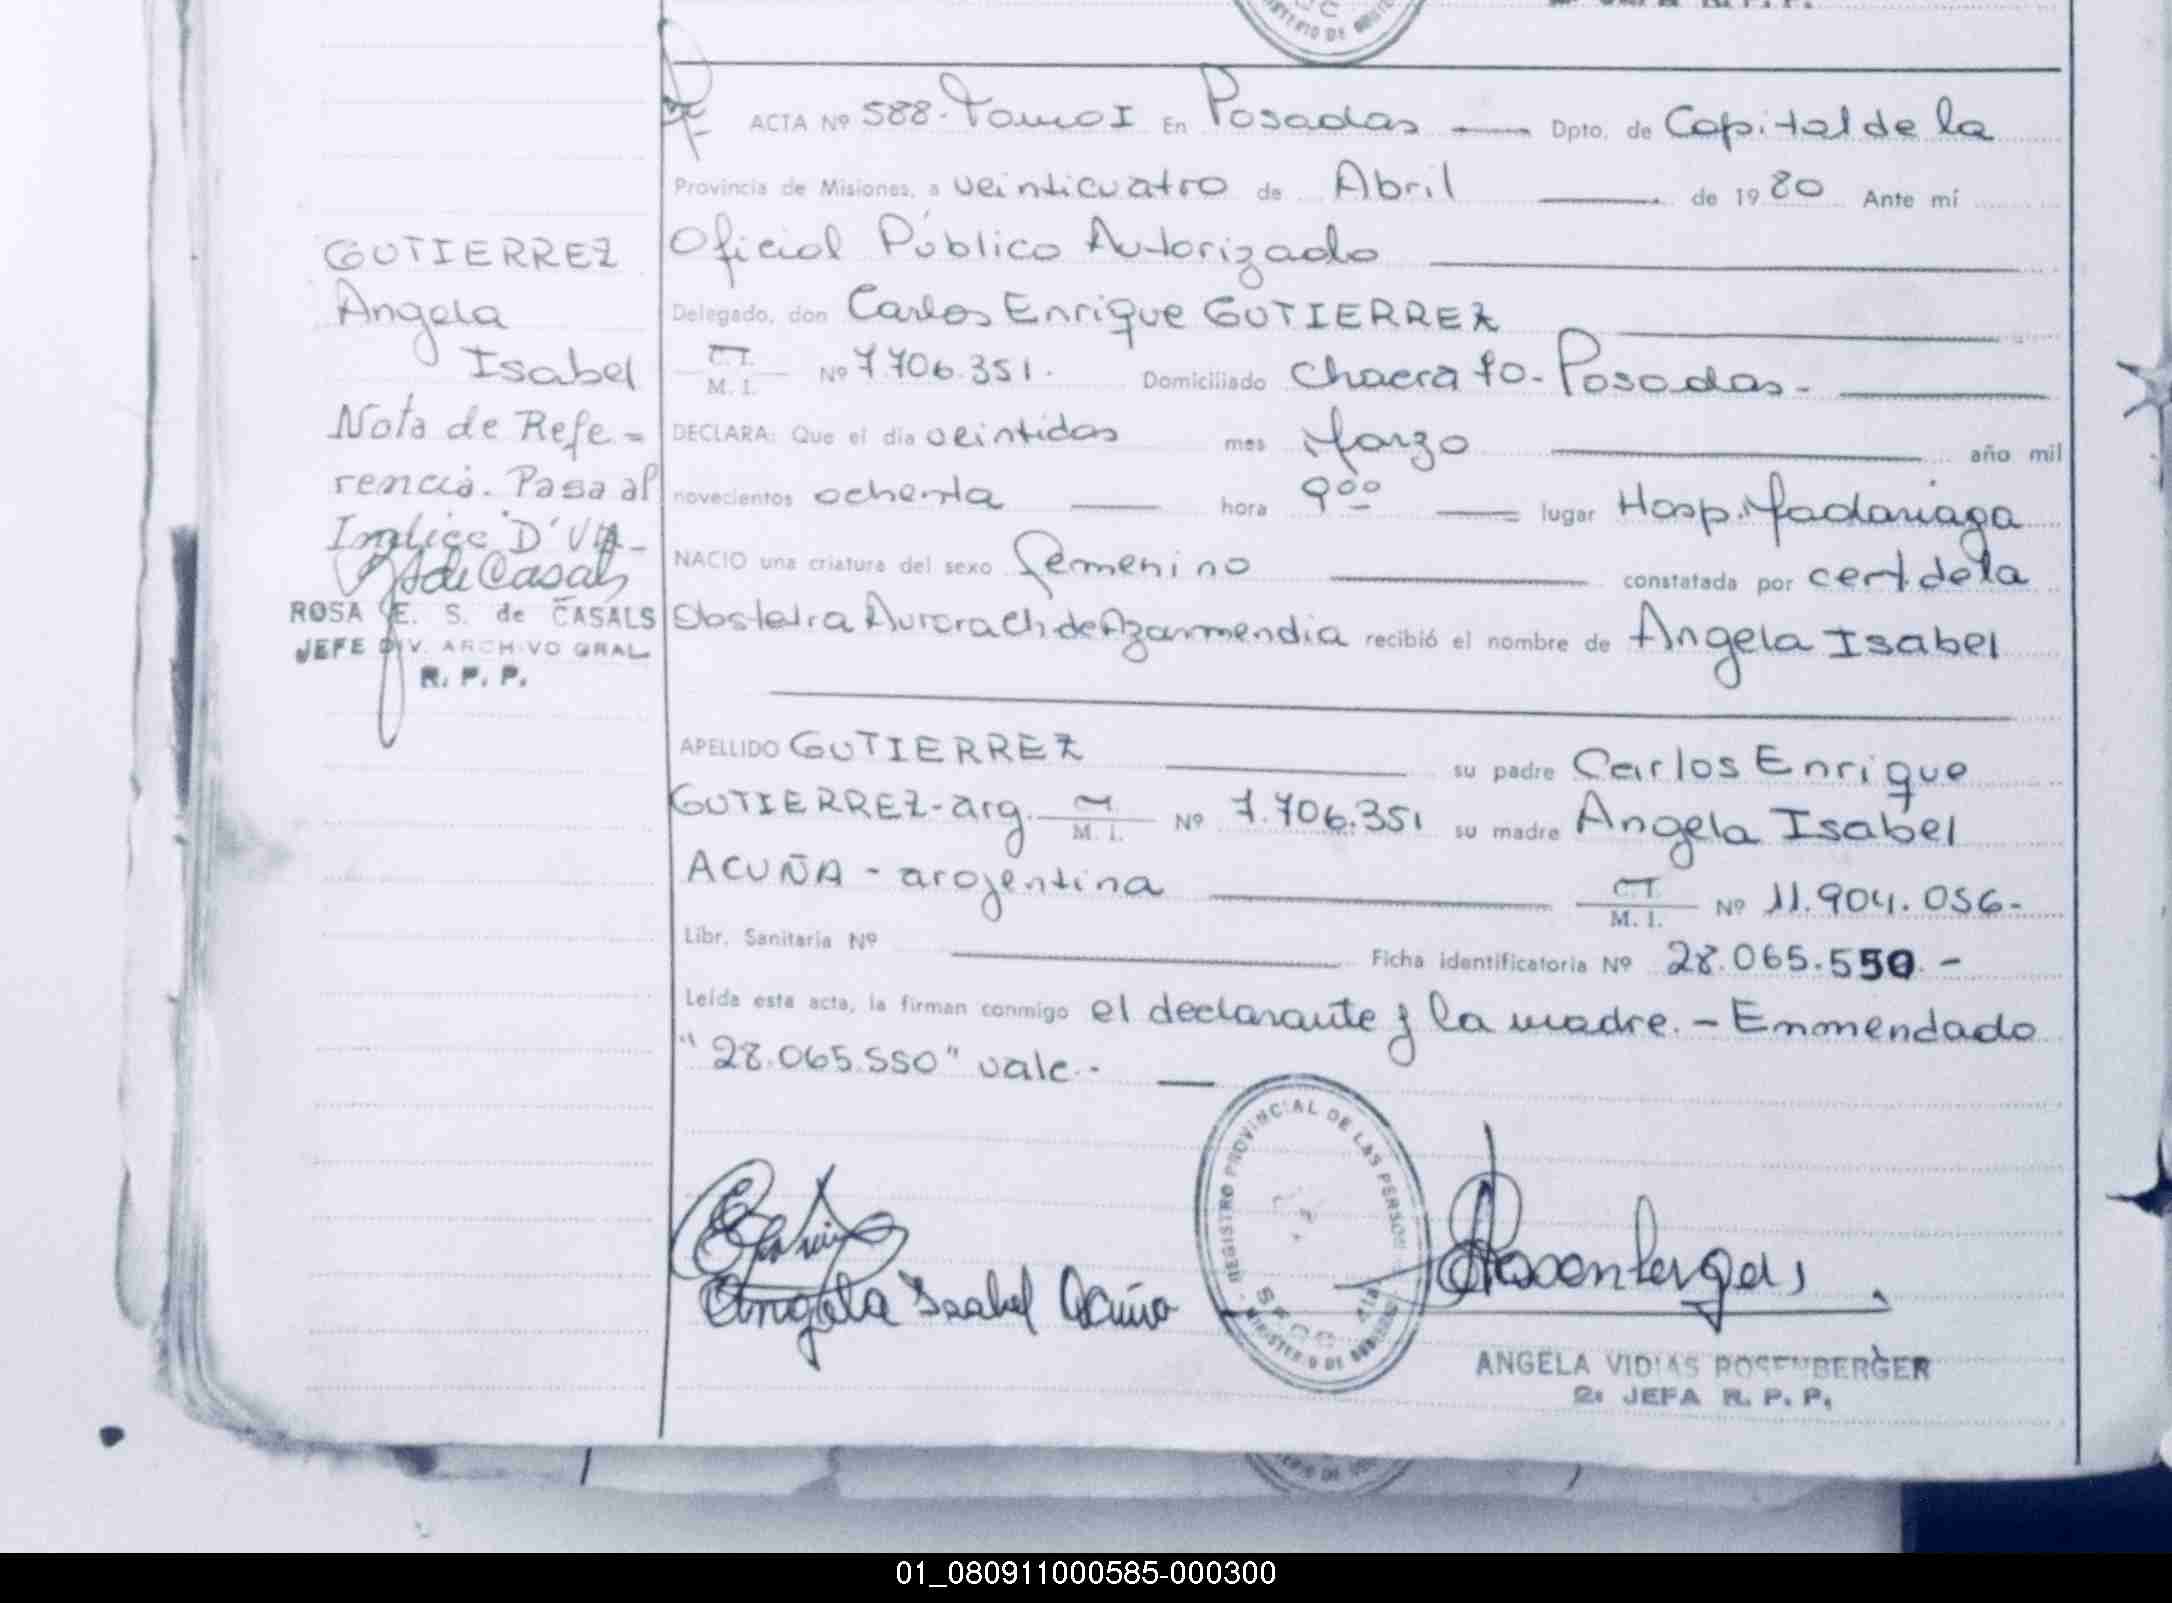 ACTA Nº 588. Tomo I En Posadas Dpto. de Capital de la
Provincia de Misiones, a veinticuatro de Abril de 1980 Ante mí
Oficial Público Autorizado
Delegado, don Carlos Enrique GUTIERREZ
C.I.
M. I. Nº 7.706.351. Domiciliado Chacra 70 - Posadas -
DECLARA: Que el día veintidos mes Marzo año mil
novecientos ochenta hora 9 00 lugar Hosp. Madariaga
NACIO una criatura del sexo femenino constatada por cert. de la
Obstetra Aurora Ch. de Azarmendia recibió el nombre de Angela Isabel
APELLIDO GUTIERREZ su padre Carlos Enrique
GUTIERREZ - arg. M. I. Nº 7.706.351 su madre Angela Isabel
ACUÑA - argentina C.I. M. I. Nº 11.904.056-
Libr. Sanitaria Nº Ficha identificatoria Nº 28.065.550. -
Leída esta acta, la firman conmigo el declarante y la madre. - Enmendado
"28.065.550" vale. -
GUTIERREZ
Angela
Isabel
Nota de Refe=
rencia. Pasa al
Indice "D"
de Casals
ROSA E. S. de CASALS
JEFE DIV. ARCHIVO GRAL.
R. P. P.
Angela Isabel Acuña
REGISTRO PROVINCIAL DE LAS PERSONAS
MINISTERIO DE GOBIERNO
Rosenberger
ANGELA VIDIAS ROSENBERGER
2ª JEFA R. P. P.
01_080911000585-000300